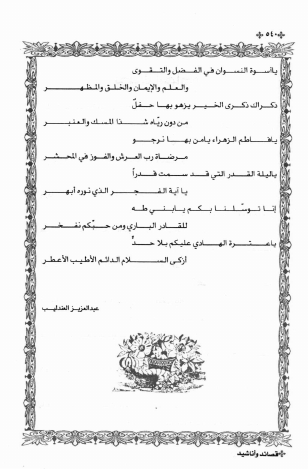 ٥٤٠
يا أسوة النسوان في الفضل والتقوى
والعلم والإيمان والخلق والمظهر
ذكراك ذكرى الخير يزهو بها حفلٌ
من دون ريّاه شذا المسك والعنبر
يا فاطم الزهراء يا من بها نرجو
مرضاة رب العرش والفوز في المحشر
يا ليلة القدر التي قد سمت قدراً
يا آية الفجر الذي نوره أبهر
إنا توسّلنا بكم يا بني طه
للقادر الباري ومن حبّكم نفخر
يا عترة الهادي عليكم بلا حدٍّ
أزكى السلام الدائم الأطيب الأعطر
عبدالعزيز العندليب
قصائد وأناشيد